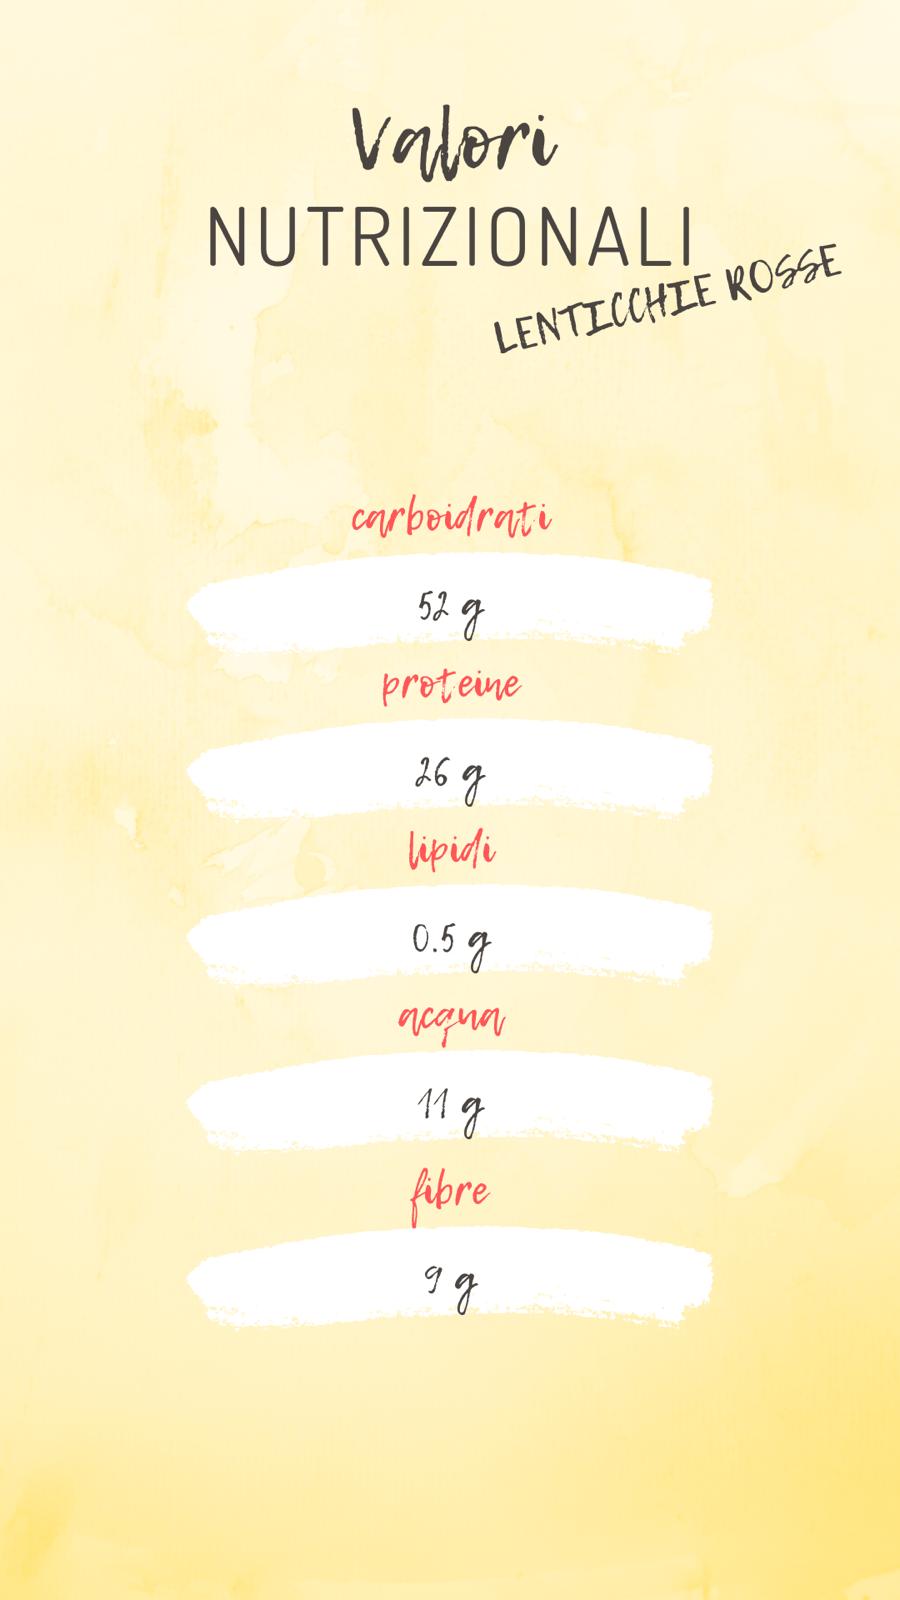 Valori
NUTRIZIONALI
LENTICCHIE ROSSE
carboidrati
52 g
proteine
26 g
lipidi
0.5 g
acqua
11 g
fibre
9 g